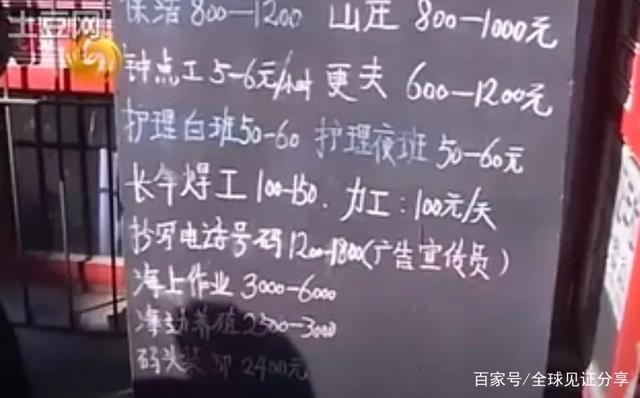 土豆网
保洁 800-1200 山庄 800-1000元
钟点工 5-6元/小时 更夫 600-1200元
护理白班50-60 护理夜班 50-60元
长年焊工 100-150. 力工:100元/天
抄写电话号码 1200-1800(广告宣传员)
海上作业 3000-6000
海 养殖 2500-3000
码头装卸 2400元
百家号/全球见证分享